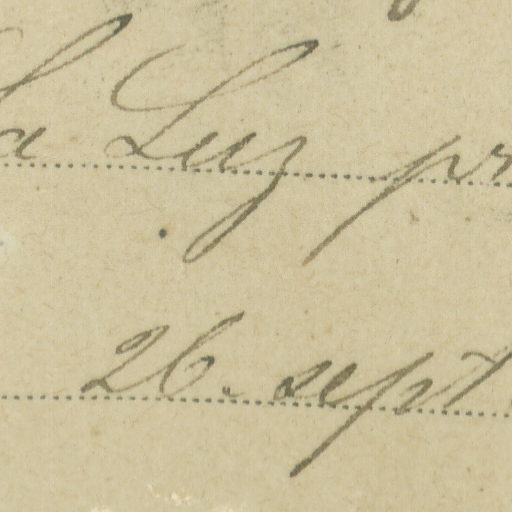 La Luz pr
26. sept